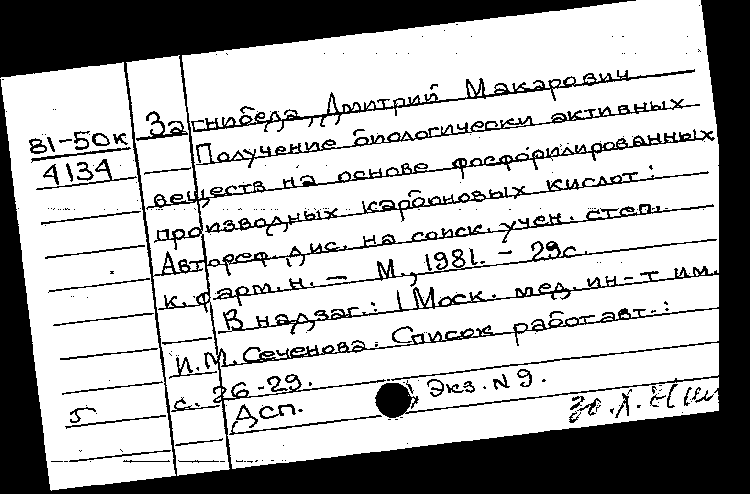 Загнибеда, Дмитрий Макарович
81-50к
4134
Получение биологически активных
веществ на основе фосфорилированных
производных карбоновых кислот:
Автореф. дис. на соиск. учен. степ.
к. фарм. н. — М., 1981. - 29с.
В надзаг.: I Моск. мед. ин-т им.
И.М. Сеченова. Список работ авт.:
с. 26-29.
5
Дсп.
Экз. N 9.
30.X.81